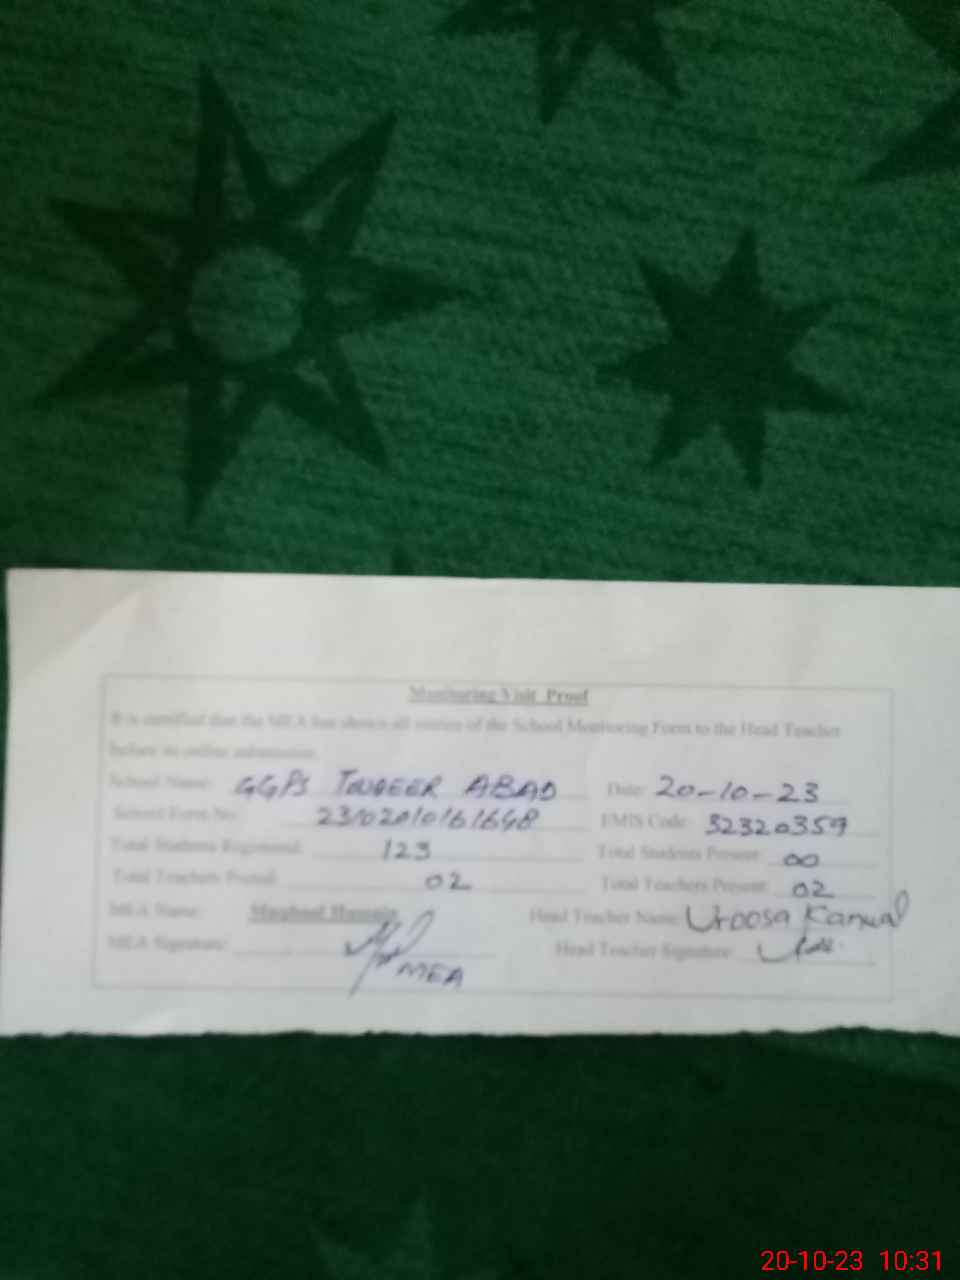 Monitoring Visit Proof
It is certified that the MEA has shown all entries of the School Monitoring Form to the Head Teacher
before its online submission.
School Name: GGPS TOUQEER ABAD Date: 20-10-23
School Form No: EMIS Code: 32320359
Total Students Registered: 123 Total Students Present: 00
Total Teachers Posted: 02 Total Teachers Present: 02
MEA Name: Maqbool Hussain Head Teacher Name: Uroosa Kanwal
MEA Signature: MEA Head Teacher Signature:
20-10-23 10:31